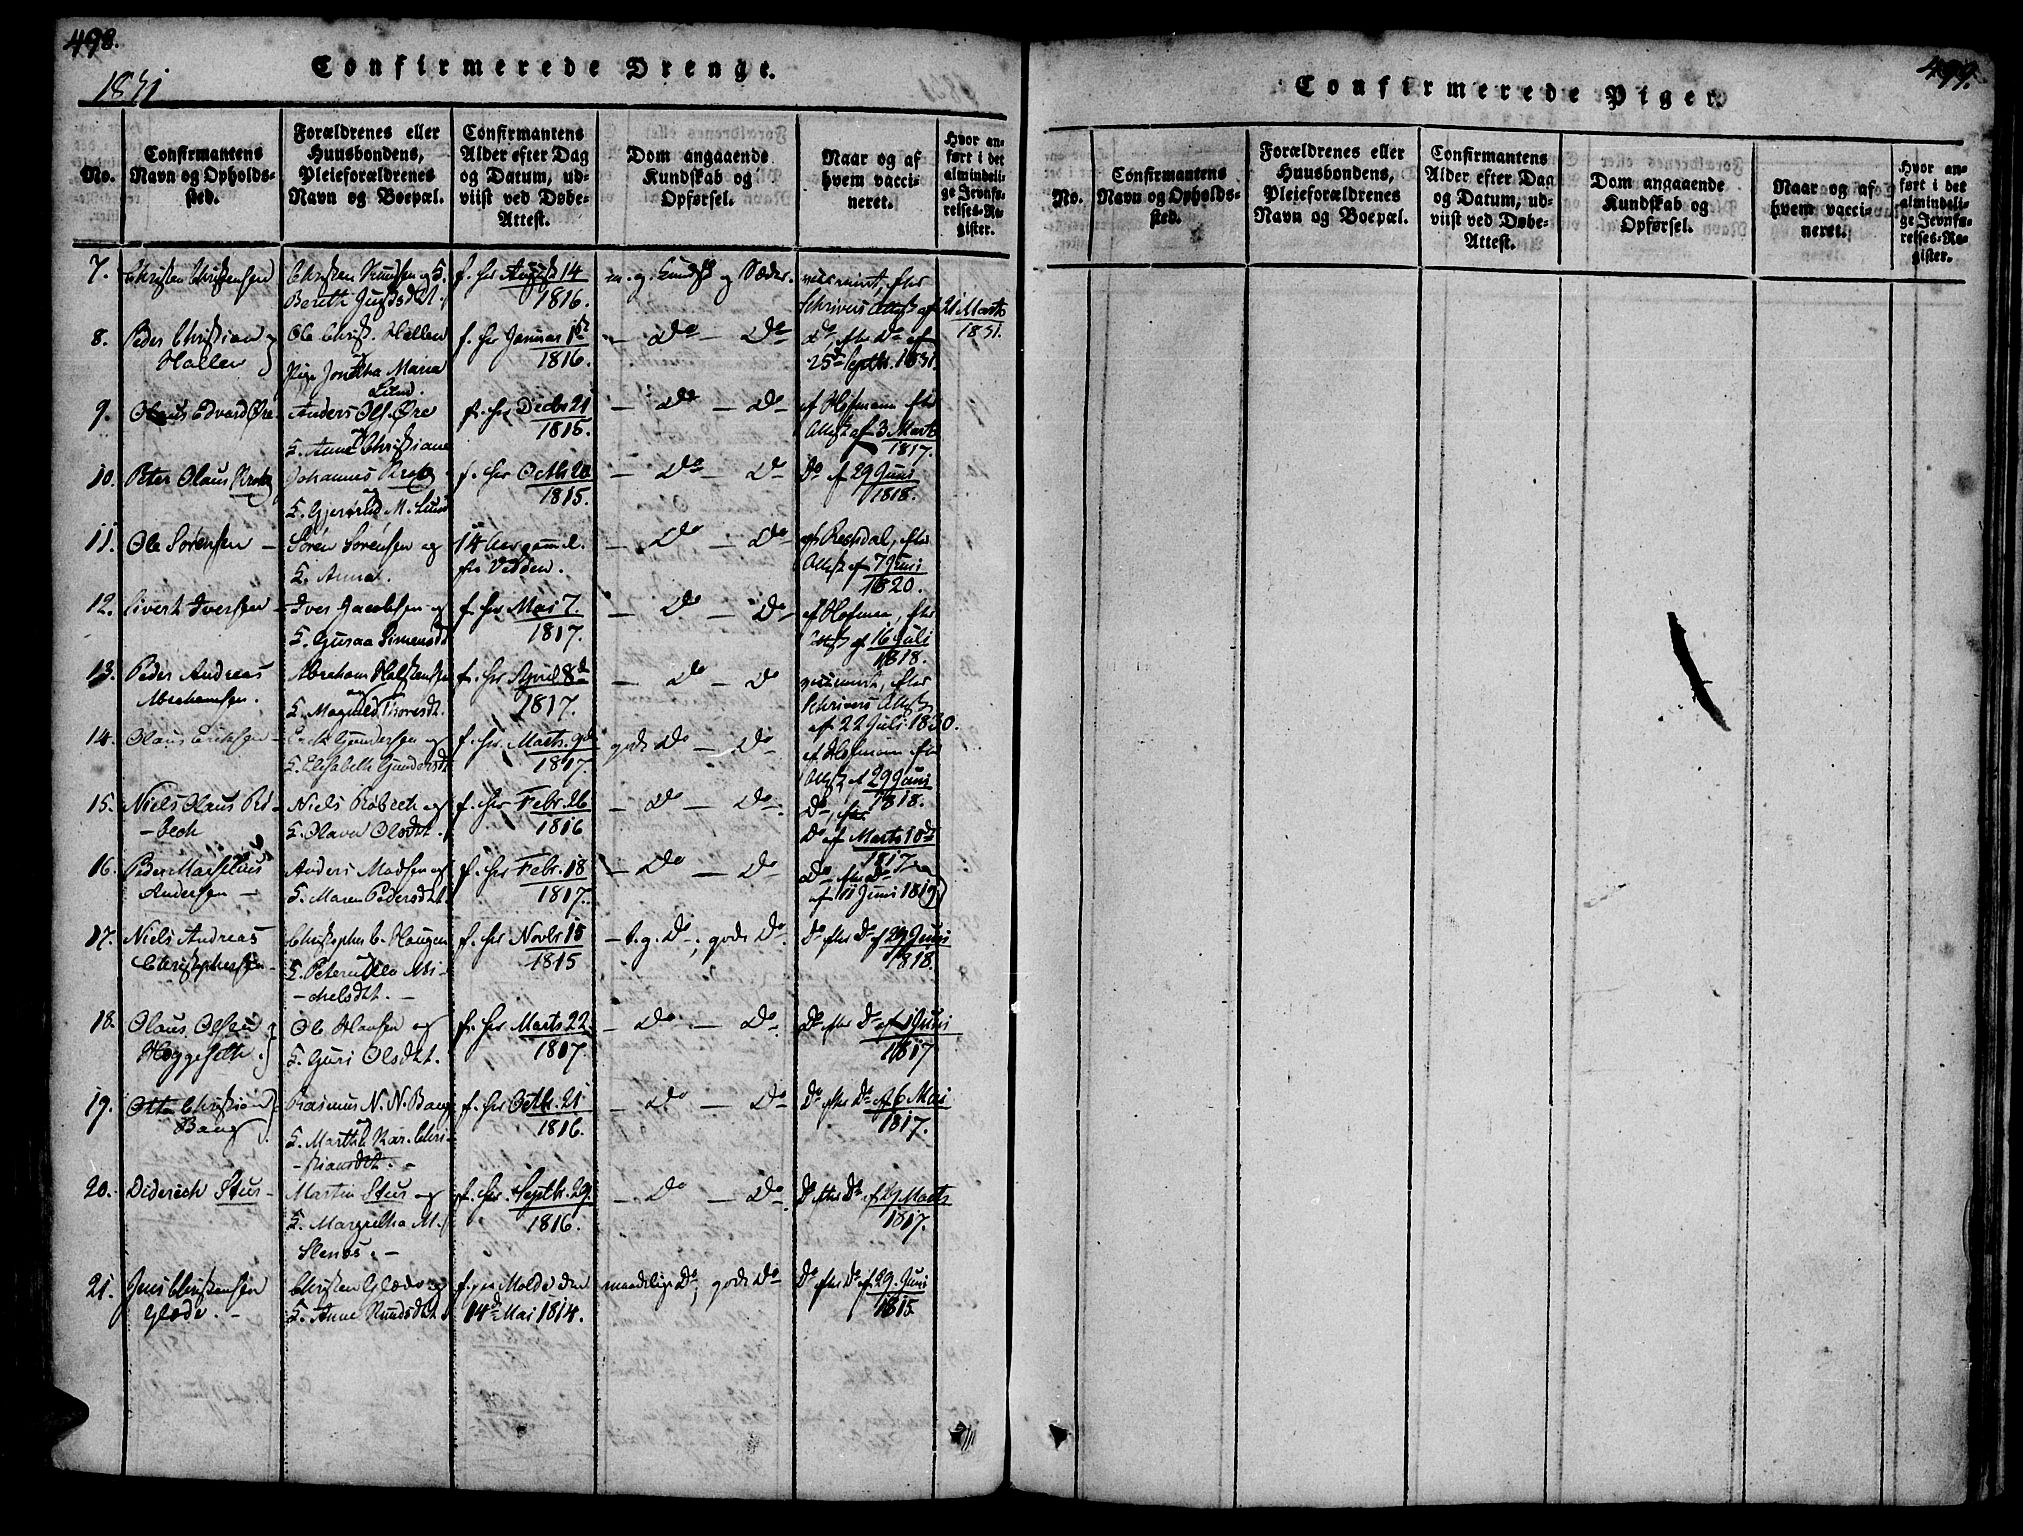 498.
Confirmerede Drenge.
1831
No.
Confirmantens
Navn og Opholds-
sted.
Forældrenes eller
Huusbondens,
Pleieforældrenes
Navn og Boepæl.
Confirmantens
Alder efter Dag
og Datum, ud-
viist ved Døbe-
Attest.
Dom angaaende
Kundskab og
Opførsel.
Naar og af
hvem vacci-
neret.
Hvor an-
ført i det
almindeli-
ge Jevnfø-
relses-Re-
gister.
7. Christen Christensen
Christen Knudsen og K.
Bereth
f. her August 14
1816.
m. g. Kundsk og Sæder.
vaccineret, efter
Schrivers Attest af 21 Marts
1831.
8. Peder Christian
Hallen
Ole Christ. Hallen
Pige Jonetha Maria
Lund.
f. her Januar 1ste
1816.
— Do — Do
Do, efter Do af
25de Septbr. 1831.
9. Olaus Edvard Øre
Anders Ols. Øre
K. Anne Christiane
f. her Decbr 21
1816.
— Do — Do
af Hofmann efter
Attest af 3 Marts
1817.
10. Peter Olaus Krog
Johannes Krog
K. Gjertrud M. Lund
f. her Octbr 20
1815.
— Do Do
Do af 29 Juni
1818.
11. Ole Sørensen —
Søren Sørensen og
K. Anna.
14 Aar gammel.
fra Vedden.
— Do — Do
af Rechdal, efter
Attest af 7 Juni
1820.
12. Sivert Iversen —
Iver Jacobsen og
K. Guraa Simensdt
f. her Mai 7.
1817.
— Do — Do —
af Hofman, efter
Attest af 16 Juli
1818.
13. Peder Andreas
Abrahamsen.
Abraham Halstensen
K. Magnild Thoresdt.
f. her April 8de
1817.
— Do — Do
vaccineret, efter
Schrivers Attest
af 22 Juli 1830.
14. Olaus Eriksen —
Erik Gundersen og
K. Elisabeth Gundersdt
f. her Marts. 9de
1817.
gode Do — Do
af Hofmann efter
Attest af 29 Juni
1818.
15. Niels Olaus Rø-
-bech
Niels Røbech og
K. Olava Olsdtt.
f. her Febr. 26
1816
— Do — Do
Do, efter
Do af Marts 10de
1817.
16. Peder Marselius
Andersen —
Anders Madsen og
K. Maren Pedersdtt.
f. her Febr. 18
1817.
— Do — Do
Do efter Do
af 11 Juni 1819
17. Niels Andreas
Christophersen
Christopher C. Haugen
K. Peternille Mi-
-chelsdtt. —
f. her Novbr 15
1815
— t. g. Do; gode Do
Do efter Do af 29 Juni
1818.
18. Olaus Olsen
Høggeseth.
Ole Hansen og
K. Guri Olsdtt.
f. her Marts 22.
1817.
— Do — Do
Do efter Do af 1 Juni
1817
19. Otto Christian
Bang
Rasmus N. N. Bang
K. Martha Kar. Chri-
-stiansdtt. —
f. her Octbr. 21
1816.
— Do — Do
Do efter Do af 6 Mai
1817.
20. Diderich Stus —
Martin Stus og
K. Margretha M.
f. her. Septbr. 29.
1816.
— Do — Do
Do efter Do af Marts
1817.
21. Jens Christensen
Glæde. —
Christen Glæde og
K. Anne Knudsdtt.
f. paa Molde den
14de Mai 1814.
maadelige Do; gode Do
Do efter Do af 29. Juni
1815.
499.
Confirmerede Piger.
No.
Confirmantens
Navn og Opholds-
sted.
Forældrenes eller
Huusbondens,
Pleieforældrenes
Navn og Boepæl.
Confirmantens
Alder efter Dag
og Datum, ud-
viist ved Døbe-
Attest.
Dom angaaende
Kundskab og
Opførsel.
Naar og af
hvem vacci-
neret.
Hvor an-
ført i det
almindeli-
ge Jevnfø-
relses-Re-
gister.